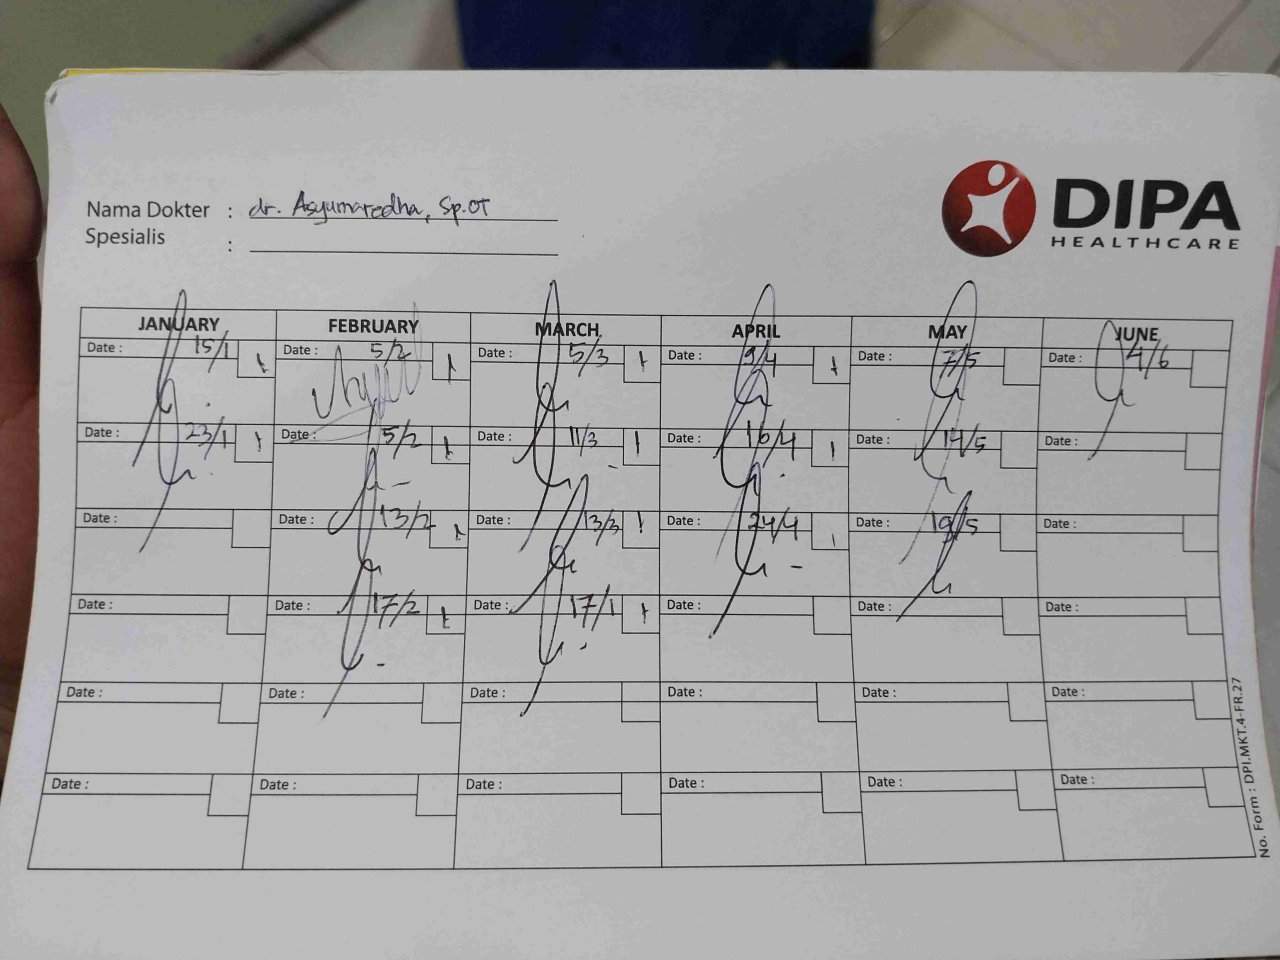 DIPA
HEALTHCARE
Nama Dokter : dr. Asyumaredha, Sp.OT
Spesialis :
JANUARY FEBRUARY MARCH APRIL MAY JUNE
Date : 15/1 1 Date : 5/2 1 Date : 5/3 1 Date : 9/4 1 Date : 7/5 Date : 4/6
Date : 23/1 1 Date : 5/2 1 Date : 11/3 1 Date : 16/4 1 Date : 14/5 Date :
Date : Date : 13/2 1 Date : 13/3 1 Date : 24/4 1 Date : 19/5 Date :
Date : Date : 17/2 1 Date : 17/1 1 Date : Date : Date :
Date : Date : Date : Date : Date : Date :
Date : Date : Date : Date : Date : Date :
No. Form : DPI.MKT.4-FR.27